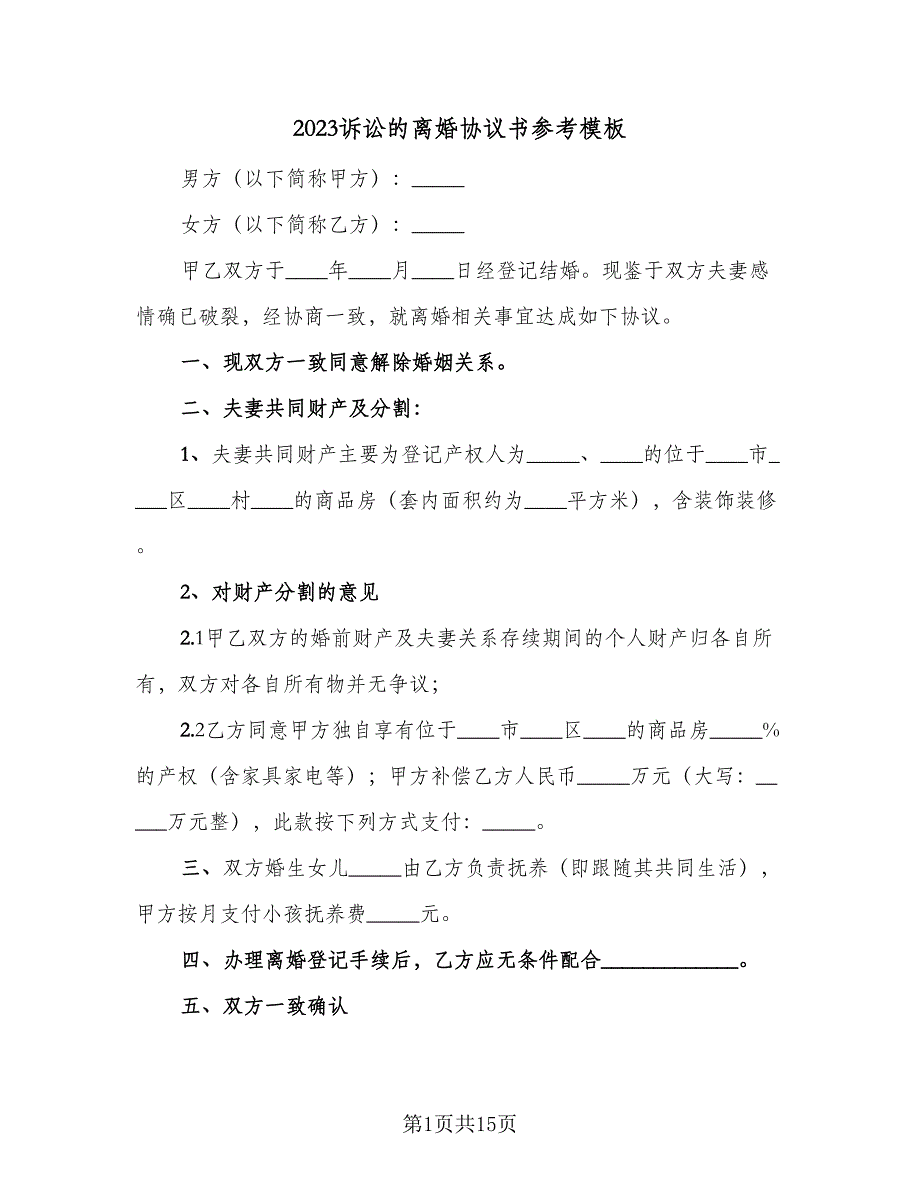 2023诉讼的离婚协议书参考模板
男方（以下简称甲方）：_____
女方（以下简称乙方）：_____
甲乙双方于____年____月____日经登记结婚。现鉴于双方夫妻感
情确已破裂，经协商一致，就离婚相关事宜达成如下协议。
一、现双方一致同意解除婚姻关系。
二、夫妻共同财产及分割：
1、夫妻共同财产主要为登记产权人为_____、____的位于____市_
___区____村____的商品房（套内面积约为____平方米），含装饰装修
。
2、对财产分割的意见
2.1甲乙双方的婚前财产及夫妻关系存续期间的个人财产归各自所
有，双方对各自所有物并无争议；
2.2乙方同意甲方独自享有位于____市____区____的商品房_____%
的产权（含家具家电等）；甲方补偿乙方人民币_____万元（大写：__
___万元整），此款按下列方式支付：_____。
三、双方婚生女儿_____由乙方负责抚养（即跟随其共同生活），
甲方按月支付小孩抚养费_____元。
四、办理离婚登记手续后，乙方应无条件配合_____________。
五、双方一致确认
第1页共15页